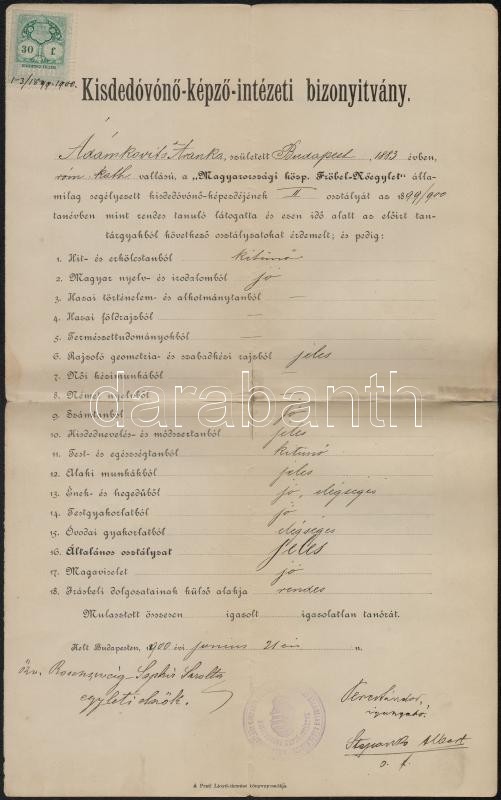 30 f.
1-3/1899-1900.
Kisdedóvónő-képző-intézeti bizonyitvány.
Adámkovits Aranka, született Budapest 1883 évben,
róm. kath. vallású, a "Magyarországi közp. Fröbel-Nőegylet" álla-
milag segélyezett kisdedóvónő-képezdéjének II osztályát az 1899/900
tanévben mint rendes tanuló látogatta és ezen idő alatt az előirt tan-
tárgyakból következő osztályzatokat érdemelt; és pedig:
1. Hit- és erkölcstanból kitünő
2. Magyar nyelv- és irodalomból jó
3. Hazai történelem- és alkotmánytanból —
4. Hazai földrajzból —
5. Természettudományokból —
6. Rajzoló geometria- és szabadkézi rajzból jeles
7. Női kézimunkából —
8. Német nyelvből
9. Számtanból jó
10. Kisdednevelés- és módszertanból jeles
11. Test- és egészségtanból kitünő
12. Alaki munkákból jeles
13. Ének- és hegedűből jó, elégséges
14. Testgyakorlatból jó
15. Óvodai gyakorlatból elégséges
16. Általános osztályzat jeles
17. Magaviselet jó
18. Irásbeli dolgozatainak külső alakja rendes
Mulasztott összesen igazolt igazolatlan tanórát.
Kelt Budapesten, 1900 évi junius 21 én n.
özv. Rosenzweig-Saphir Sarolta
egyleti elnök.
Peres Sándor,
igazgató.
Stepanko Albert
o. f.
A Pesti Lloyd-társulat könyvnyomdája
darabanth